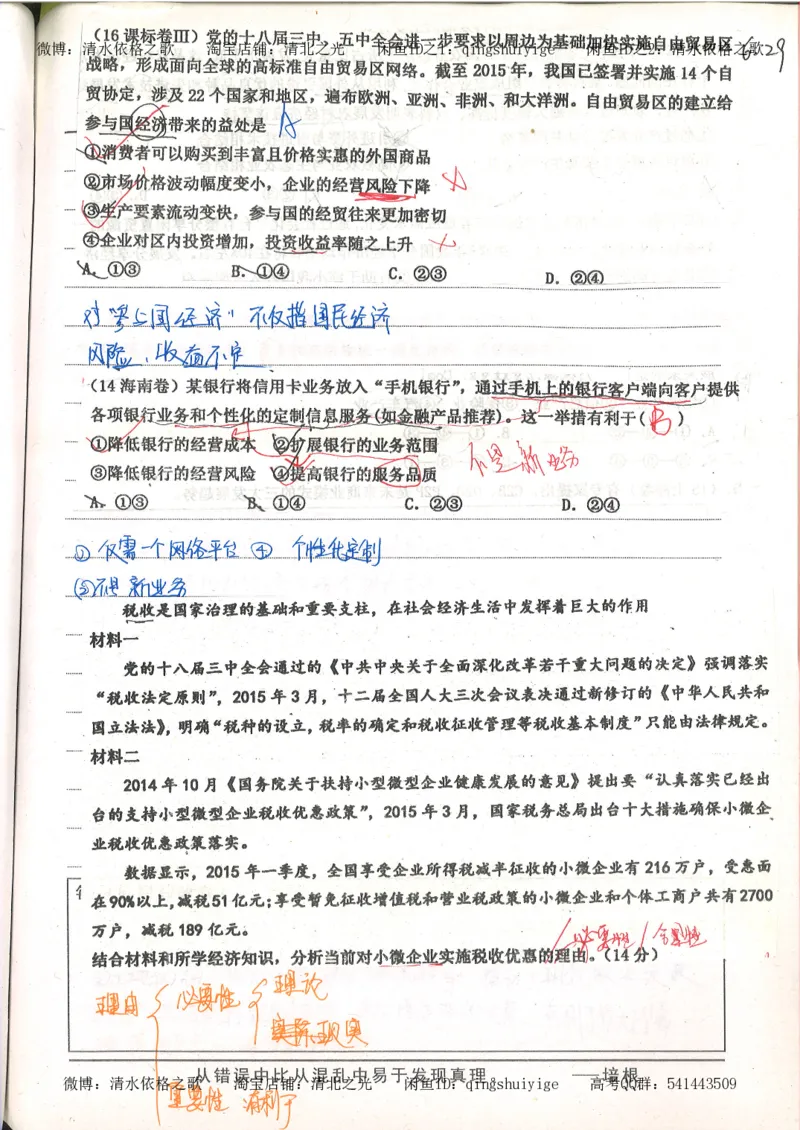 （16课标卷Ⅲ）党的十八届三中、五中全会进一步要求以周边为基础加快实施自由贸易区
微博：清水依格之歌 淘宝店铺：清北之光 闲鱼ID之1：qingshuiyige 闲鱼ID之2：清水依格之歌
629
战略，形成面向全球的高标准自由贸易区网络。截至2015年，我国已签署并实施14个自
贸协定，涉及22个国家和地区，遍布欧洲、亚洲、非洲、和大洋洲。自由贸易区的建立给
参与国经济带来的益处是 A
①消费者可以购买到丰富且价格实惠的外国商品
②市场价格波动幅度变小，企业的经营风险下降
③生产要素流动变快，参与国的经贸往来更加密切
④企业对区内投资增加，投资收益率随之上升
A．①③ B．①④ C．②③ D．②④
对“参与国经济”不仅指国民经济
风险、收益不定
（14海南卷）某银行将信用卡业务放入“手机银行”，通过手机上的银行客户端向客户提供
各项银行业务和个性化的定制信息服务(如金融产品推荐)。这一举措有利于( B )
①降低银行的经营成本 ②扩展银行的业务范围
不是新业务
③降低银行的经营风险 ④提高银行的服务品质
A．①③ B．①④ C．②③ D．②④
① 仅需一个网络平台 ④ 个性化定制
②不是新业务
税收是国家治理的基础和重要支柱，在社会经济生活中发挥着巨大的作用
材料一
党的十八届三中全会通过的《中共中央关于全面深化改革若干重大问题的决定》强调落实
“税收法定原则”，2015年3月，十二届全国人大三次会议表决通过新修订的《中华人民共和
国立法法》，明确“税种的设立，税率的确定和税收征收管理等税收基本制度”只能由法律规定。
材料二
2014年10月《国务院关于扶持小型微型企业健康发展的意见》提出要“认真落实已经出
台的支持小型微型企业税收优惠政策”，2015年3月，国家税务总局出台十大措施确保小微企
业税收优惠政策落实。
数据显示，2015年一季度，全国享受企业所得税减半征收的小微企业有216万户，受惠面
在90%以上，减税51亿元；享受暂免征收增值税和营业税政策的小微企业和个体工商户共有2700
万户，减税189亿元。
必要性 / 合理性
结合材料和所学经济知识，分析当前对小微企业实施税收优惠的理由。（14分）
理由 必要性 理论
实际现实
重要性 有利于
从错误中比从混乱中易于发现真理 ——培根
微博：清水依格之歌 淘宝店铺：清北之光 闲鱼ID：qingshuiyige 高考QQ群：541443509